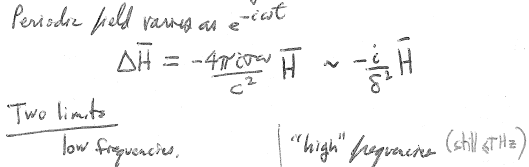 Periodic field varies as e^{-iωt}
ΔH̄ = -4πiσω/c² H̄ ~ -i/δ² H̄
Two limits
low frequencies. | "high" frequencies (still ≲THz)